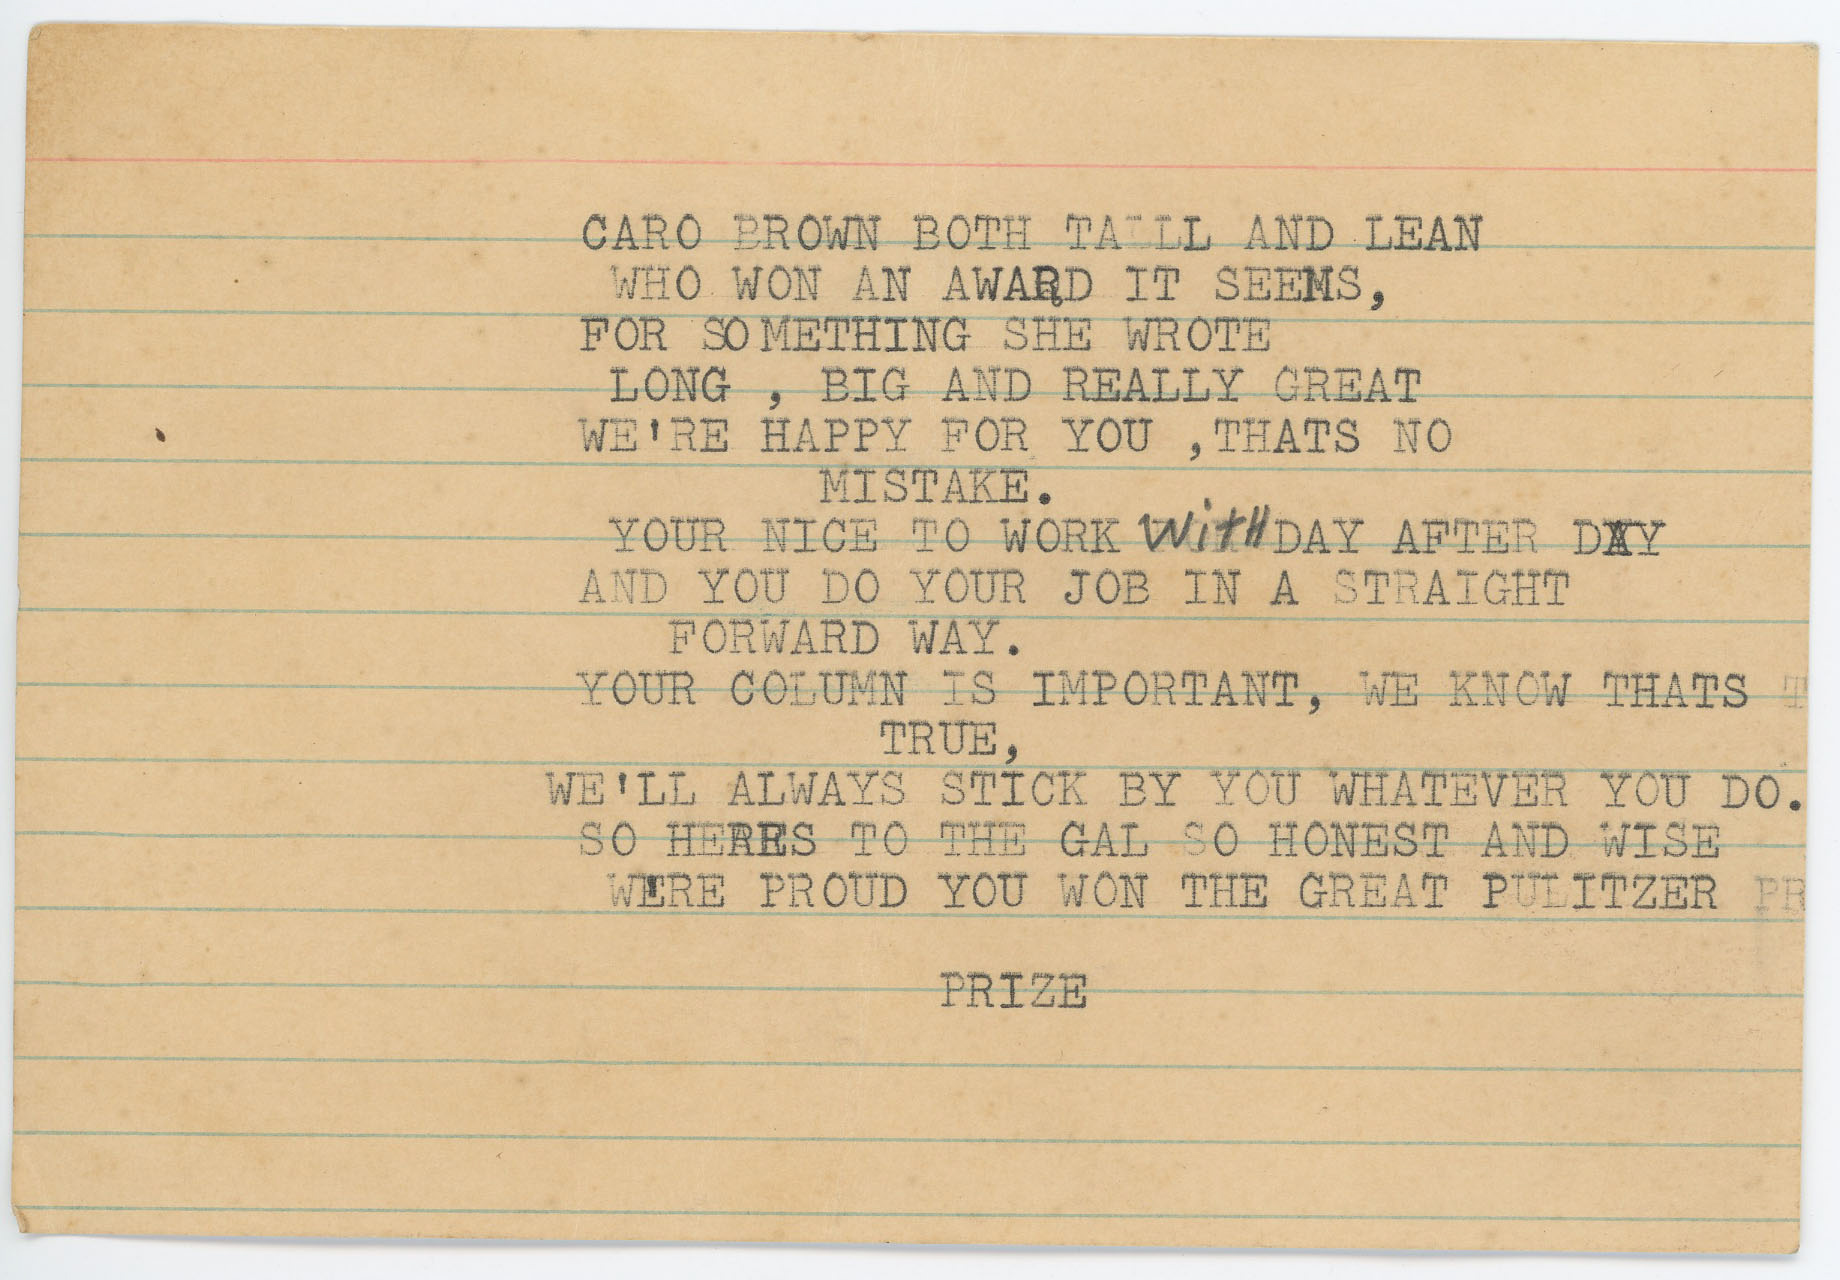 CARO BROWN BOTH TALLL AND LEAN
WHO WON AN AWARD IT SEEMS,
FOR SOMETHING SHE WROTE
LONG , BIG AND REALLY GREAT
WE'RE HAPPY FOR YOU ,THATS NO
MISTAKE.
YOUR NICE TO WORK With DAY AFTER DAY
AND YOU DO YOUR JOB IN A STRAIGHT
FORWARD WAY.
YOUR COLUMN IS IMPORTANT, WE KNOW THATS T
TRUE,
WE'LL ALWAYS STICK BY YOU WHATEVER YOU DO.
SO HERES TO THE GAL SO HONEST AND WISE
WE'RE PROUD YOU WON THE GREAT PULITZER PR
PRIZE